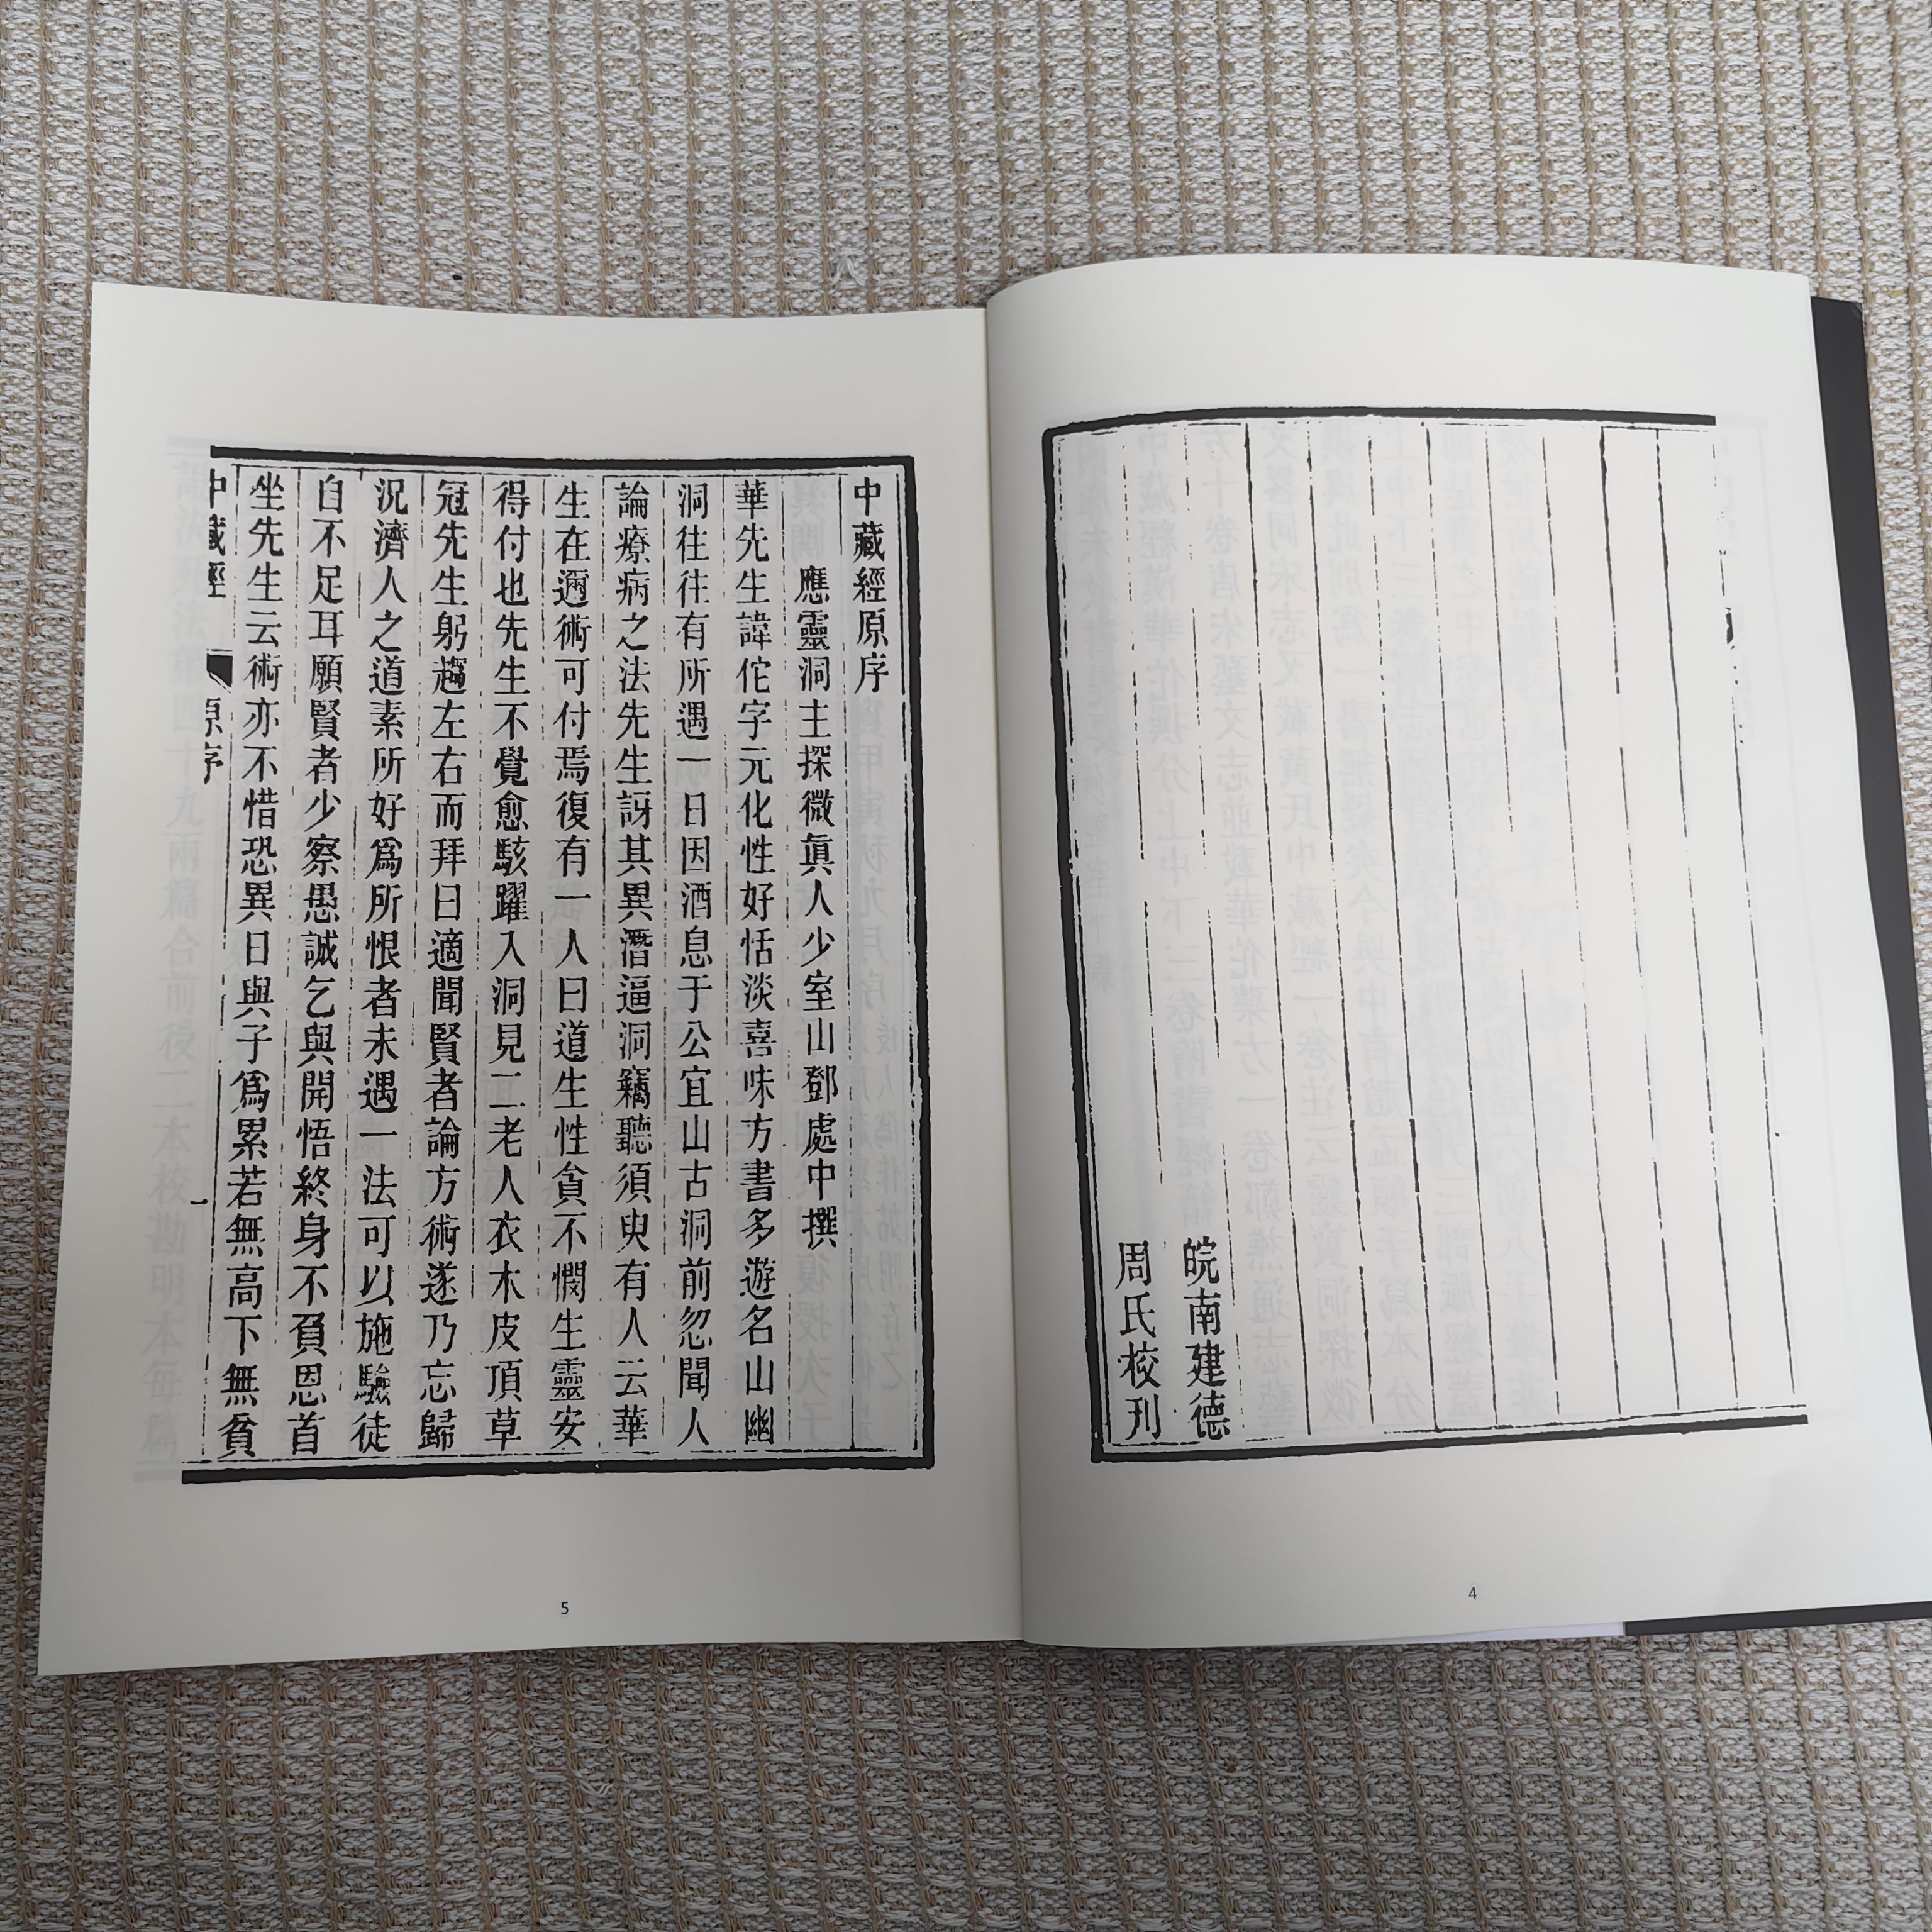 皖南建德
周氏校刊
4
中藏經原序
應靈洞主探微眞人少室山鄧處中撰
華先生諱佗字元化性好恬淡喜味方書多遊名山幽
洞往往有所遇一日因酒息于公宜山古洞前忽聞人
論療病之法先生訝其異潛逼洞竊聽須臾有人云華
生在邇術可付焉復有一人曰道生性貪不憫生靈安
得付也先生不覺愈駭躍入洞見二老人衣木皮頂草
冠先生躬趨左右而拜曰適聞賢者論方術遂乃忘歸
況濟人之道素所好爲所恨者未遇一法可以施驗徒
自不足耳願賢者少察愚誠乞與開悟終身不負恩首
坐先生云術亦不惜恐異日與子爲累若無高下無貧
中藏經 原序 一
5